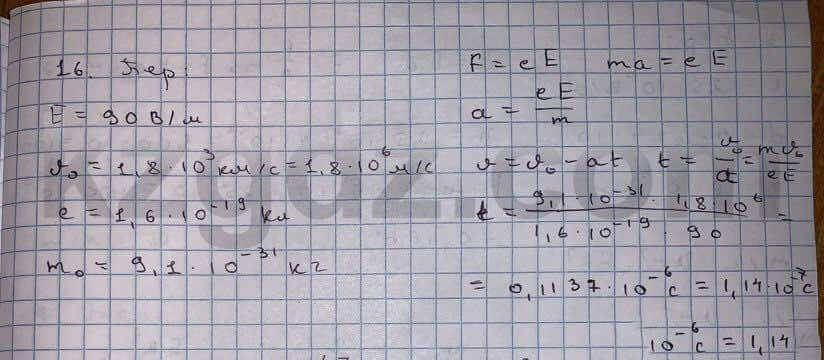 16. Бер:
E = 90 В/м
v₀ = 1,8·10³ км/с = 1,8·10⁶ м/с
e = 1,6·10⁻¹⁹ Кл
m₀ = 9,1·10⁻³¹ кг
F = eE   ma = eE
a = eE/m
v = v₀ - at   t = v₀/a = mv₀/eE
t = 9,1·10⁻³¹·1,8·10⁶ / 1,6·10⁻¹⁹·90 =
= 0,1137·10⁻⁶ с = 1,14·10⁻⁷ с
10⁻⁶ с = 1,14